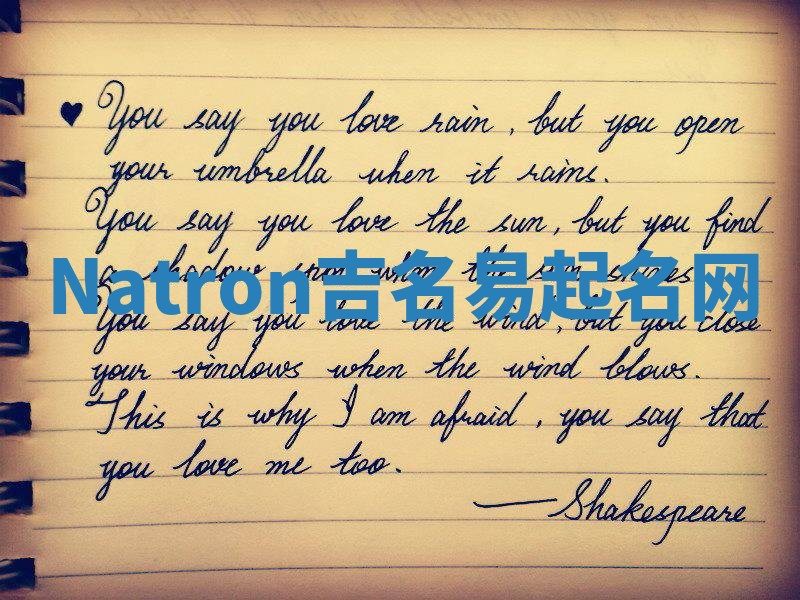 ♥ You say you love rain, but you open
your umbrella when it rains.
You say you love the sun, but you find
a shadow spot when the sun shines
Natron吉名易起名网
You say you love the wind, but you close
your windows when the wind blows.
This is why I am afraid, you say that
you love me too.
— Shakespeare